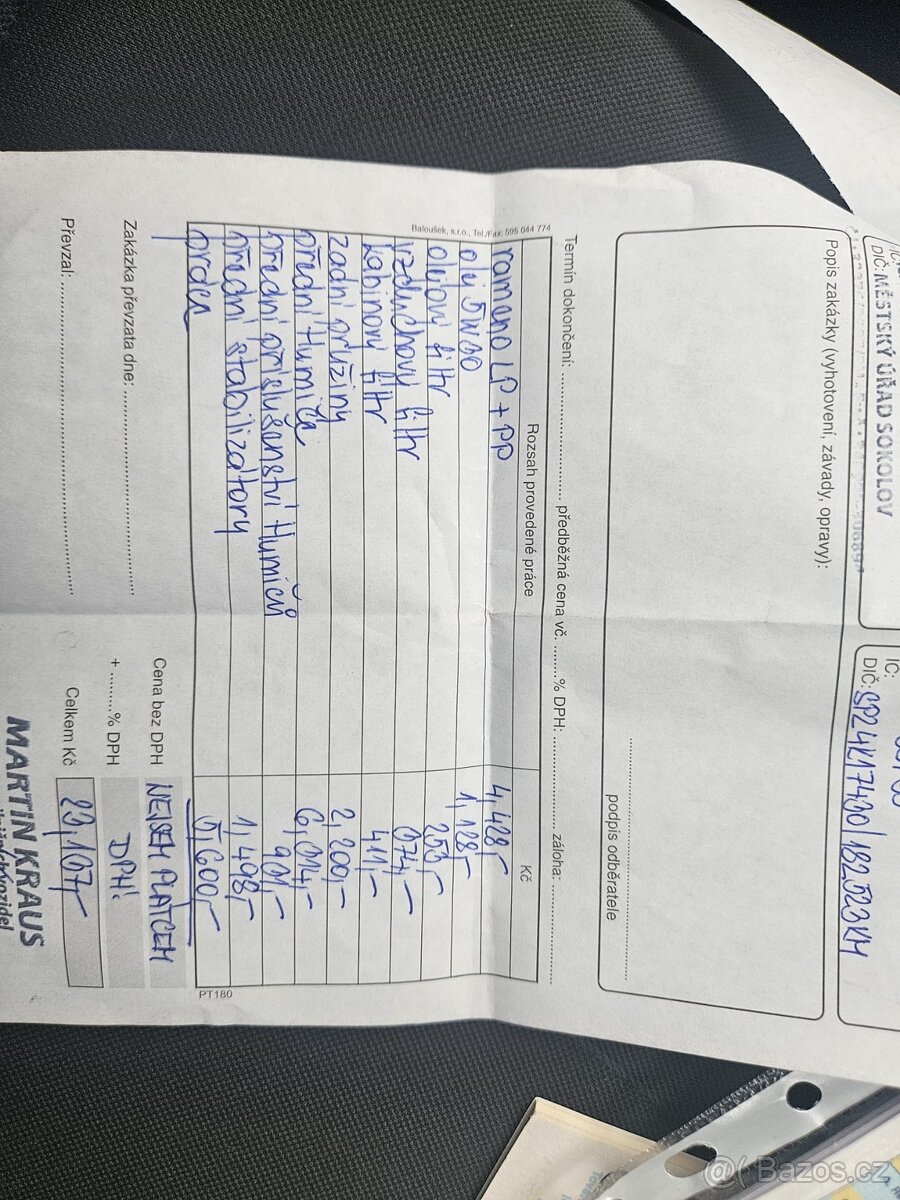 DIČ: MĚSTSKÝ ÚŘAD SOKOLOV
IČ:
DIČ:
182523KM
Popis zakázky (vyhotovení, závady, opravy):
podpis odběratele
Termín dokončení: předběžná cena vč. % DPH: záloha:
Baloušek, s.r.o., Tel./Fax: 595 044 774
Rozsah provedené práce Kč
rameno LP + PP 4,428,-
olej 5W30 1,128,-
olejový filtr 253,-
vzduchový filtr 674,-
kabinový filtr 411,-
zadní pružiny 2,200,-
přední tlumiče 6,014,-
přední příslušenství tlumičů 901,-
přední stabilizátory 1,498,-
práce 5,600,-
PT180
Zakázka převzata dne: Cena bez DPH NEJSEM PLÁTCEM
+ % DPH DPH!
Převzal: Celkem Kč 23,107,-
MARTIN KRAUS
Bazos.cz